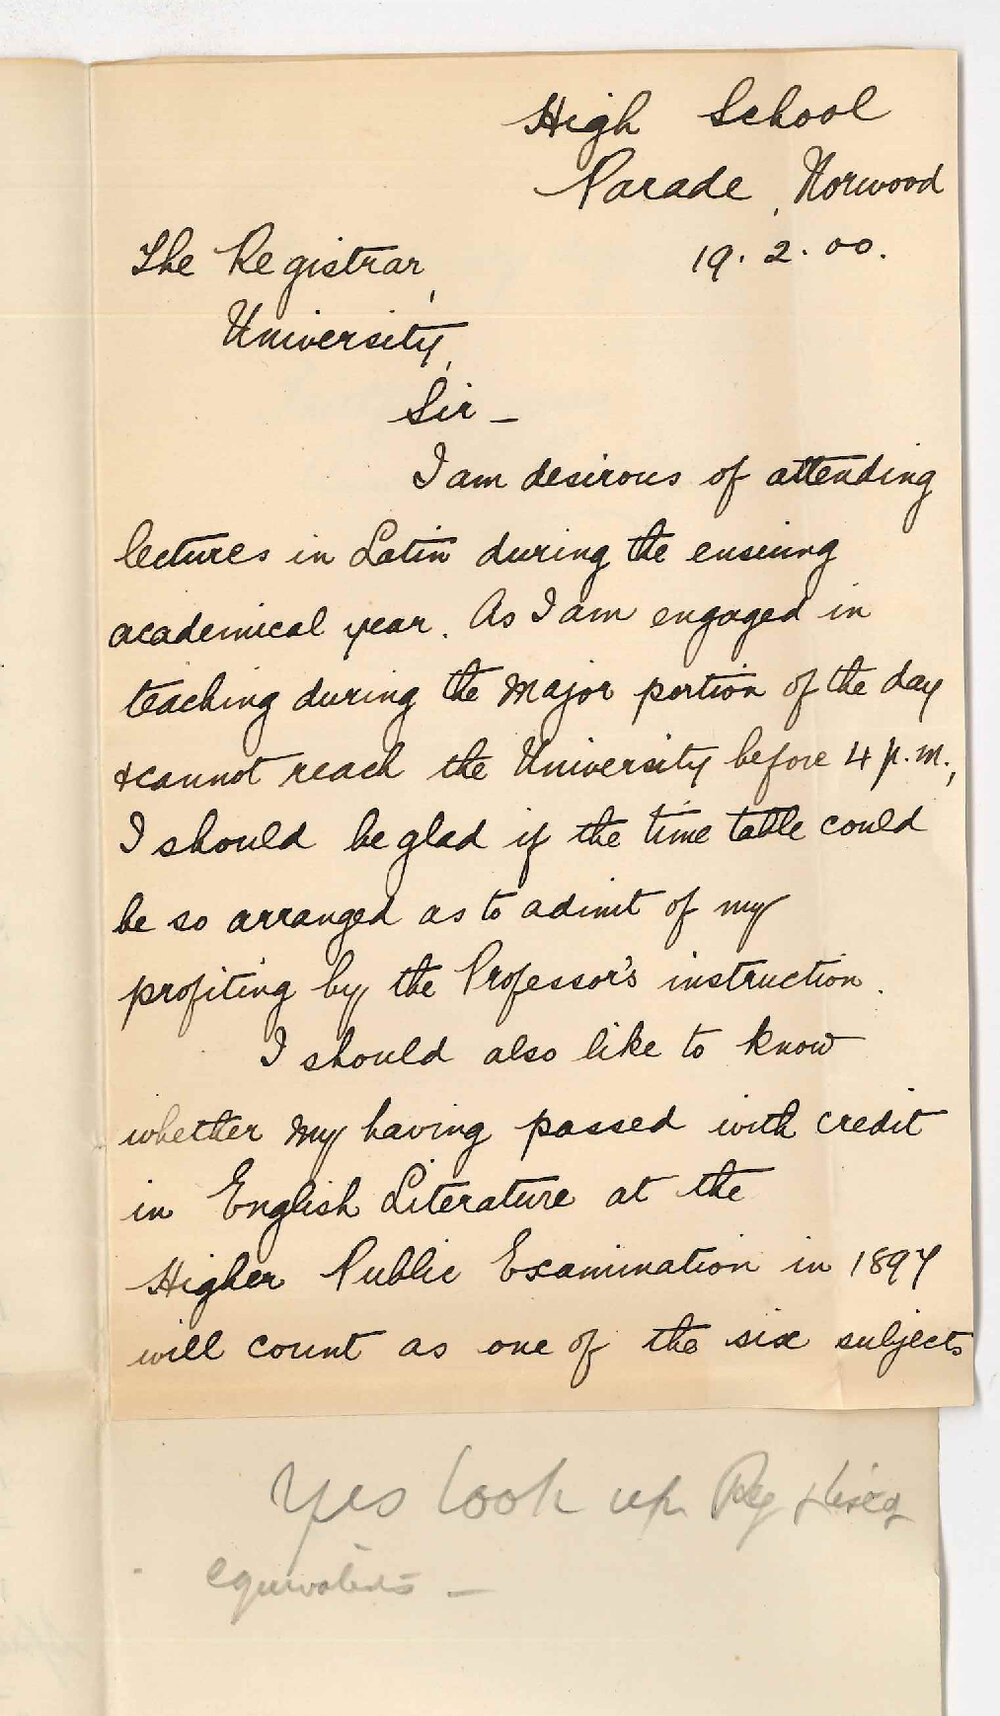 High School
Parade, Norwood
19.2.00.
The Registrar,
University,
Sir —
I am desirous of attending
lectures in Latin during the ensuing
academical year. As I am engaged in
teaching during the major portion of the day
& cannot reach the University before 4 p.m.,
I should be glad if the time table could
be so arranged as to admit of my
profiting by the Professor's instruction.
I should also like to know
whether my having passed with credit
in English Literature at the
Higher Public Examination in 1897
will count as one of the six subjects
Yes look up Reg